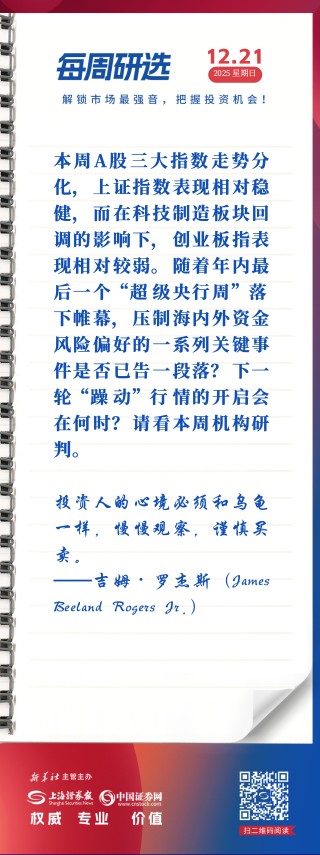 每周研选
12.21
2025 星期日
解锁市场最强音，把握投资机会！
本周A股三大指数走势分
化，上证指数表现相对稳
健，而在科技制造板块回
调的影响下，创业板指表
现相对较弱。随着年内最
后一个“超级央行周”落
下帷幕，压制海内外资金
风险偏好的一系列关键事
件是否已告一段落？下一
轮“躁动”行情的开启会
在何时？请看本周机构研
判。
投资人的心境必须和乌龟
一样，慢慢观察，谨慎买
卖。
——吉姆·罗杰斯（James
Beeland Rogers Jr.）
新华社 主管主办
上海证券报 中国证券网
Shanghai Securities News www.cnstock.com
权威 专业 价值
扫二维码阅读